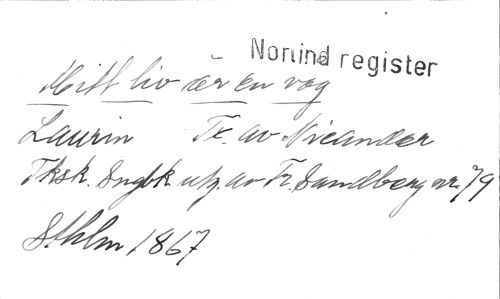 Norlind register
Mitt liv är en våg
Laurin Tr. av Nicander
Tksk. Sngbk utg. av Fr. Sandberg nr. 79
Sthlm 1867